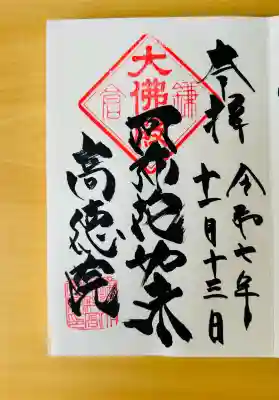 奉拝
令和七年
十一月十三日
鎌倉
大佛殿
阿弥陀如来
高徳院